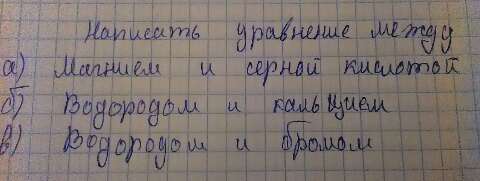 Написать уравнение между
а) Магнием и серной кислотой
б) Водородом и кальцием
в) Водородом и бромом